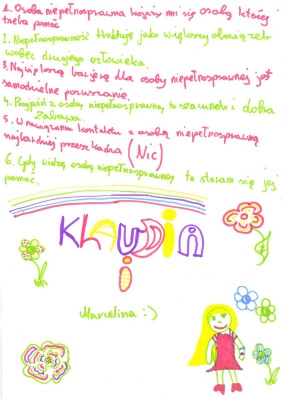 1. Osoba niepełnosprawna kojarzy mi się osobą której
trzeba pomóc
2. Niepełnosprawność traktuję jako większy obowiązek
wobec drugiego człowieka.
3. Największą barierą dla osoby niepełnosprawnej jest
samodzielne poruszanie.
4. Przyjaźń z osobą niepełnosprawną to szacunek i dobra
zabawa.
5. W nawiązaniu kontaktu z osobą niepełnosprawną
najbardziej przeszkadza (Nic)
6. Gdy widzę osobę niepełnosprawną to staram się jej
pomóc.
KLAUDIA
i
Marcelina :)